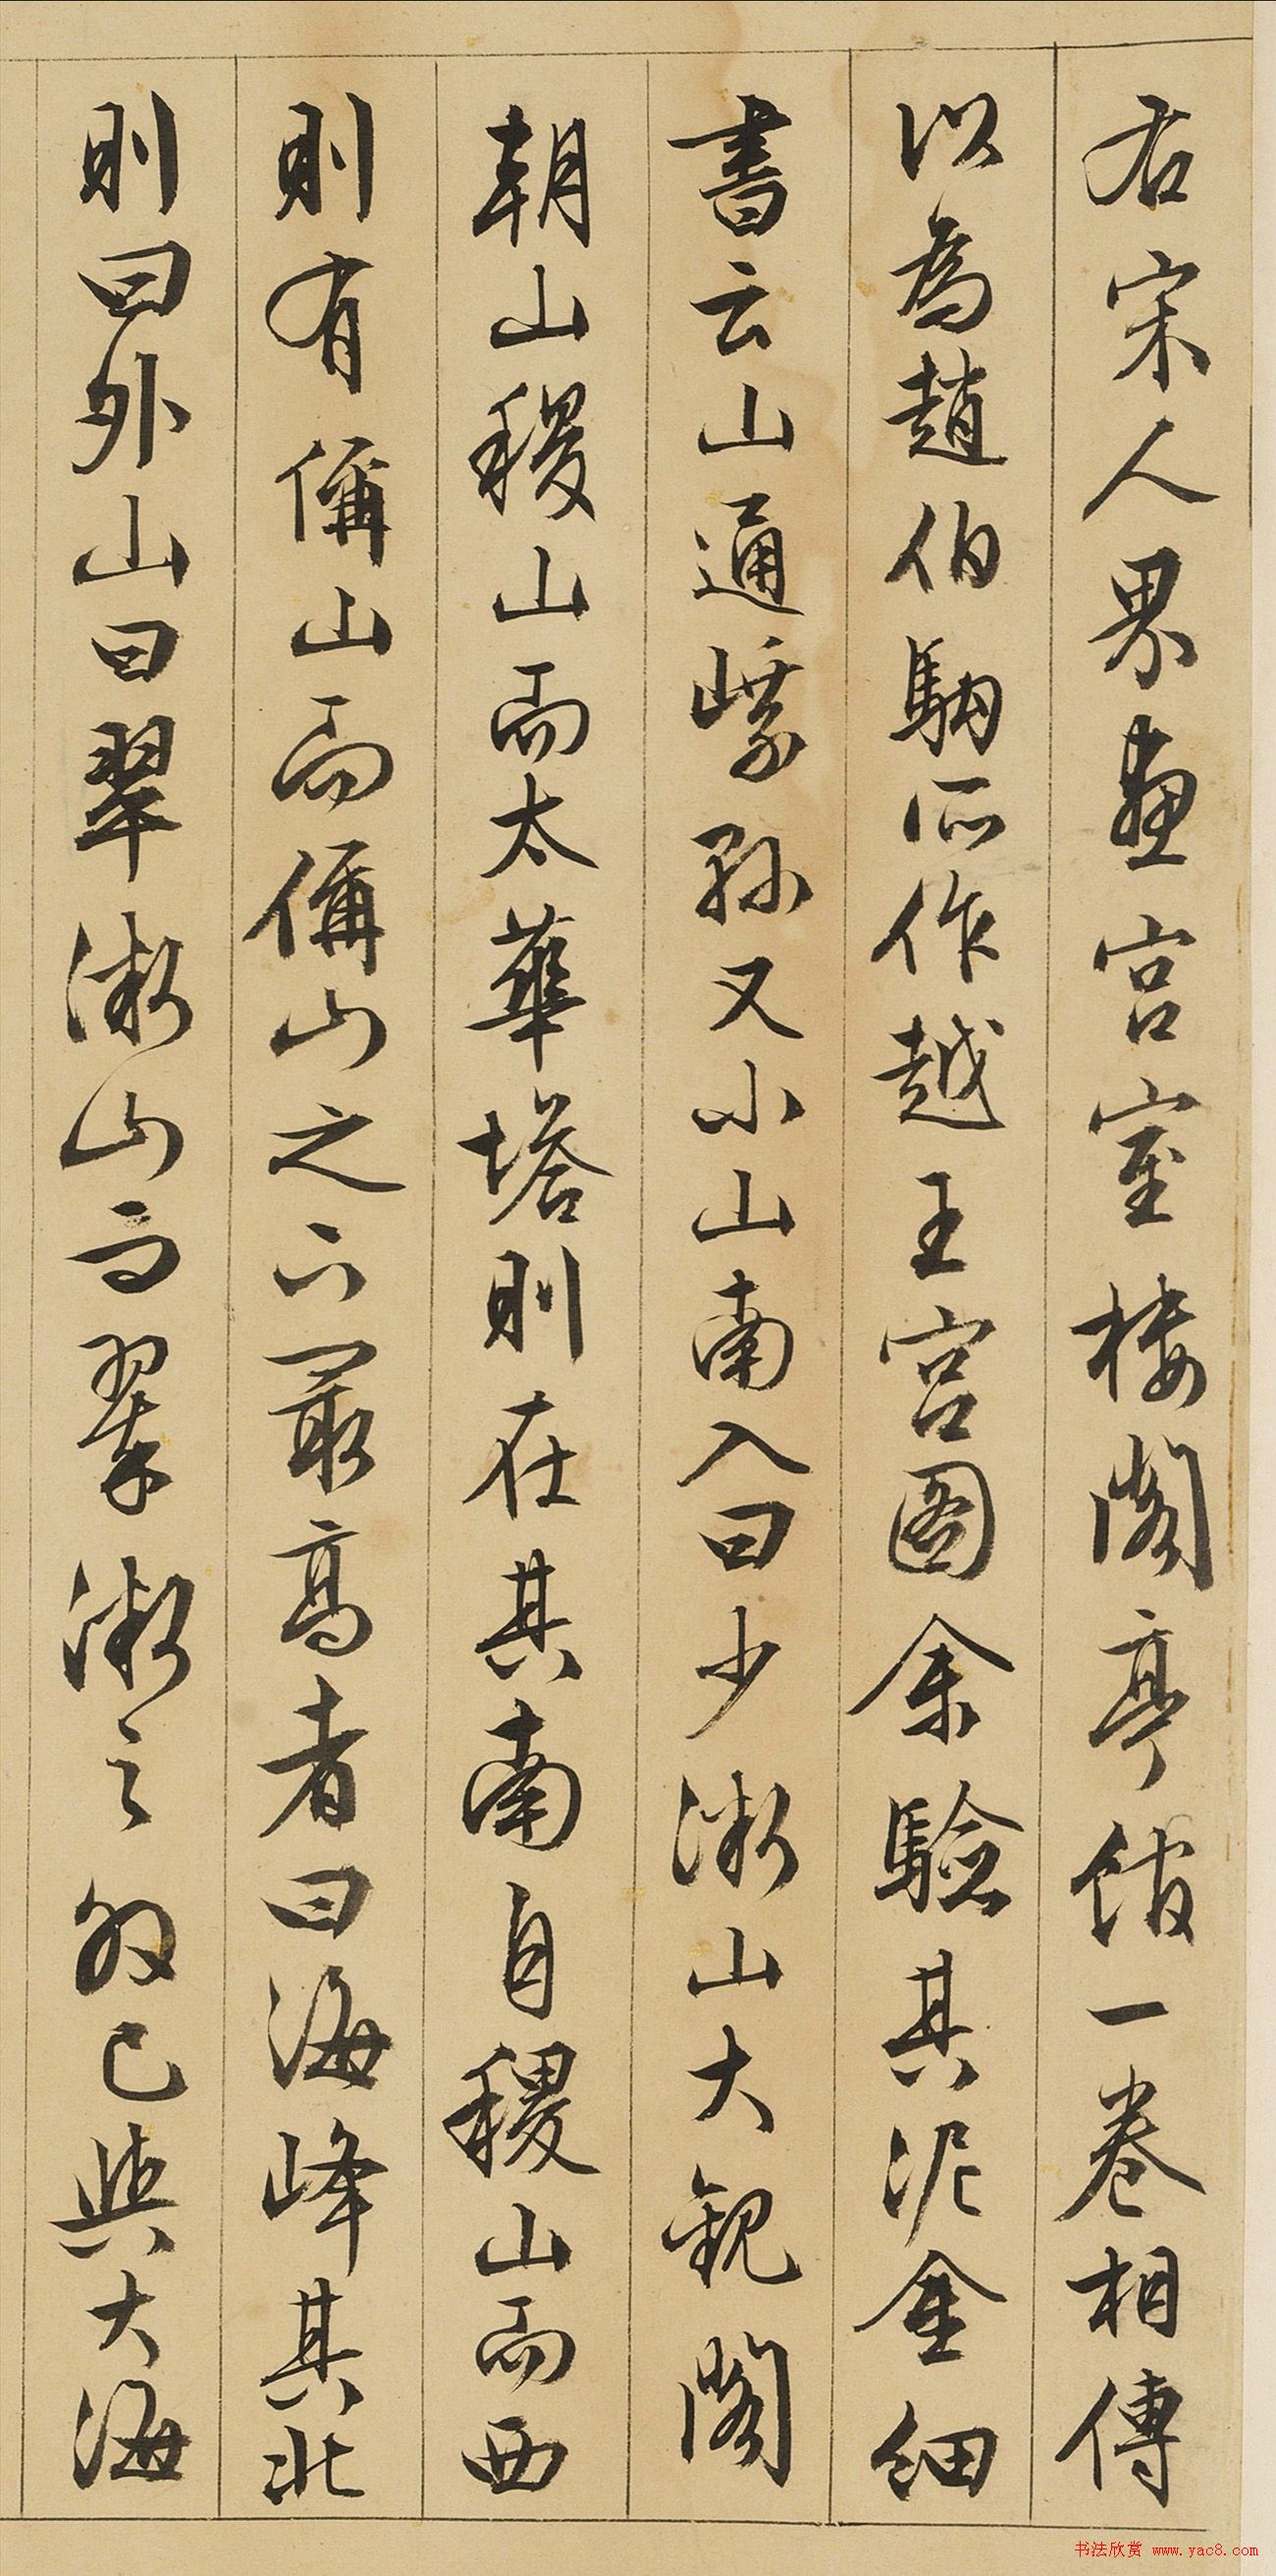 右宋人界畫宮室樓閣亭館一卷相傳
以為趙伯駒所作越王宮圖余驗其泥金細
書云山通嶫孫又小山南入曰少漵山大觀閣
朝山稷山而太華塔則在其南自稷山而西
則有偁山而偁山之下最高者曰海峰其北
則曰外山曰翠漵山而翠漵之外已與大海
书法欣赏 www.yac8.com